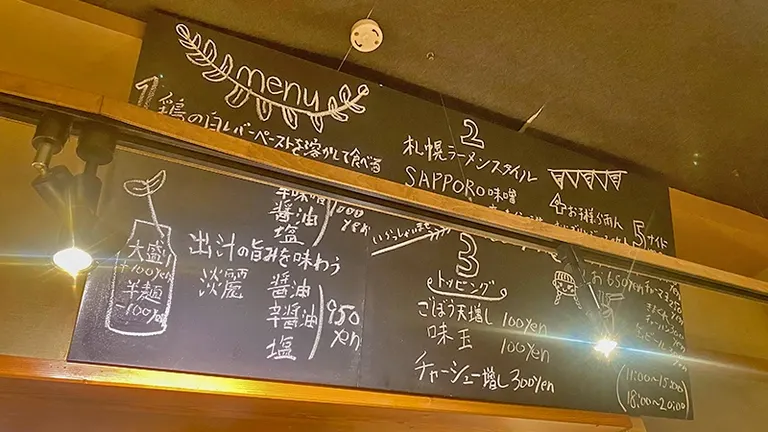 menu
1
鶏の白レバーペーストを溶かして食べる
辛味噌
醤油
塩
1000
yen
出汁の旨みを味わう
淡麗
醤油
辛醤油
塩
950
yen
大盛
+100yen
半麺
-100yen
2
札幌ラーメンスタイル
SAPPORO味噌
いらっしゃいませ
3
トッピング
ごぼう天増し 100yen
味玉 100yen
チャーシュー増し 300yen
4 お子様らあめん
5 サイド
650yen
(11:00~15:00)
18:00~20:00